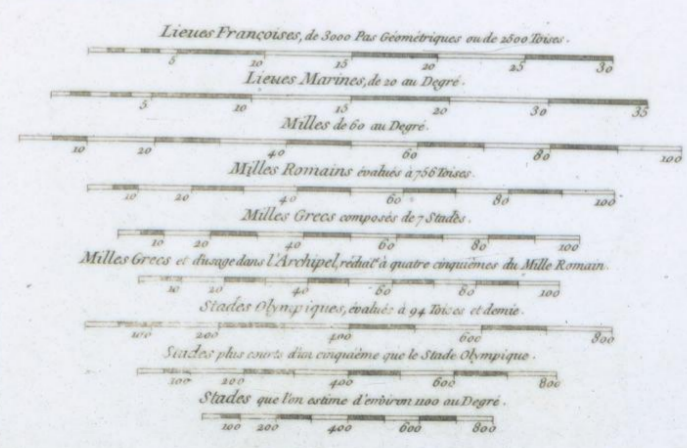 Lieues Françoises, de 3000 Pas Géométriques ou de 2500 Toises.
5 10 15 20 25 30
Lieues Marines, de 20 au Degré.
5 10 15 20 30 35
Milles de 60 au Degré.
10 20 40 60 80 100
Milles Romains évalués à 756 Toises
10 20 40 60 80 100
Milles Grecs composés de 7 Stades.
10 20 40 60 80 100
Milles Grecs et d'usage dans l'Archipel, réduit à quatre cinquièmes du Mille Romain.
10 20 40 60 80 100
Stades Olympiques, évalués à 94 Toises et demie.
100 200 400 600 800
Stades plus courts d'un cinquième que le Stade Olympique.
100 200 400 600 800
Stades que l'on estime d'environ 1100 au Degré.
100 200 400 600 800